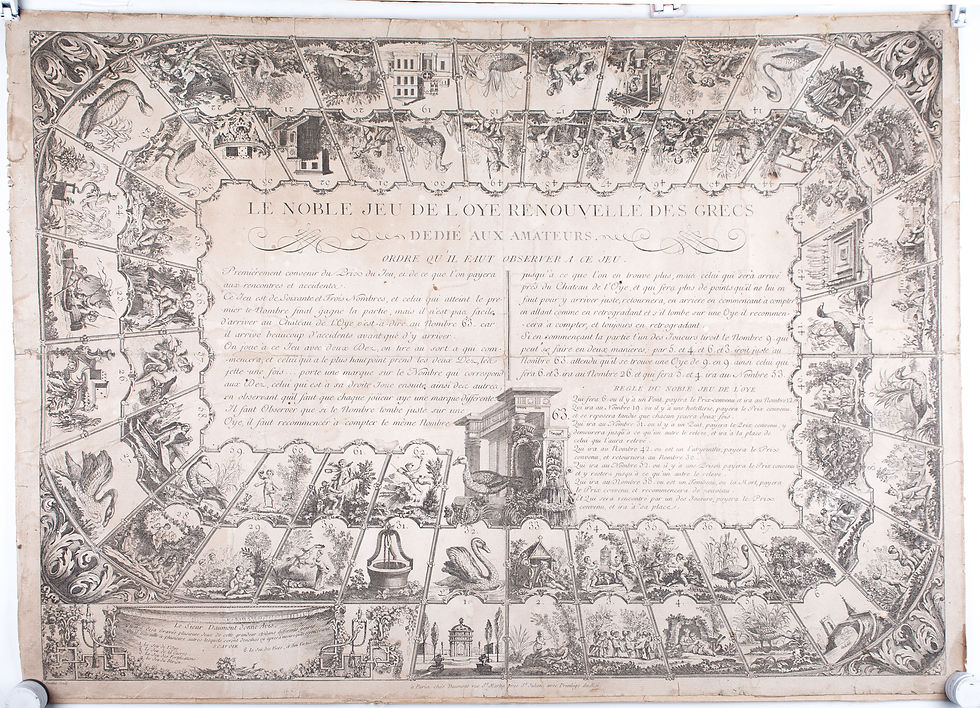 LE NOBLE JEU DE L'OYE RENOUVELLÉ DES GRECS
DEDIÉ AUX AMATEURS.
ORDRE QU'IL FAUT OBSERVER A CE JEU.
Premièrement convenir du Prix du Jeu, et de ce que l'on payera
aux rencontres et accidents.
Ce Jeu est de Soixante et Trois Nombres, et celui qui atteint le pre-
mier le Nombre final gagne la partie, mais il n'est pas facile
d'arriver au Chateau de l'Oye c'est a dire au Nombre 63. car
il arrive beaucoup d'accidents avant que d'y arriver.
On joue à ce Jeu avec deux Dez, on tire au sort a qui com-
mencera, et celui qui a le plus haut point prend les deux Dez, les
jette une fois... porte une marque sur le Nombre qui correspond
aux Dez, celui qui est a sa droite Joue ensuite, ainsi des autres,
en observant qu'il faut que chaque joueur aye une marque differente
Il faut Observer que si le Nombre tombe juste sur une
Oye, il faut recommencer a compter le même Nombre
jusqu'a ce que l'on en trouve plus, mais celui qui sera arrivé
près du Chateau de l'Oye, et qui fera plus de points qu'il ne lui en
faut pour y arriver juste, retournera, en arriere en commencant a compter
en allant comme en retrogradant et s'il tombe sur une Oye il recommen-
cera a compter, et toujours en retrogradant.
Si en commençant la partie l'un des Joueurs tiroit le Nombre 9 qui
peut se faire en deux manieres, par 5. et 4. et 6. et 3. iroit juste au
Nombre 63. attendu qu'il se trouve une Oye de 9. en 9. ainsi celui qui
fera 6. et 3. ira au Nombre 26. et qui fera 5. et 4. ira au Nombre 53.
REGLE DU NOBLE JEU DE L'OYE
Qui fera 6. ou il y a un Pont, payera le Prix convenu et ira au Nombre 12.
Qui ira au Nombre 19. ou il y a une hotellerie, payera le Prix convenu
et se reposera tandis que chacun jouera deux fois.
Qui ira au Nombre 31. ou il y a un Puit, payera le Prix convenu, y
demeurera jusqu'à ce qu'un autre le retire, et ira à la place de
celui qui l'aura retiré.
Qui ira au Nombre 42. ou est un Labyrinthe, payera le Prix
convenu, et retournera au Nombre 30.
Qui ira au Nombre 52. ou il y a une Prison payera le Prix convenu
et y restera jusqu'à ce qu'un autre le releve.
Qui ira au Nombre 58. ou est un Tombeau, ou la Mort, payera
le Prix convenu, et recommencera de nouveau.
Qui sera rencontré par un des Joueurs, payera le Prix
convenu, et ira a sa place.
63
59
60
61
62
29
30
31
33
35
36
37
1
2
4
Le Sieur Daumont
SÇAVOIR
à Paris, chez Daumont rue St. Martin près St. Julien, avec Privilege du Roi